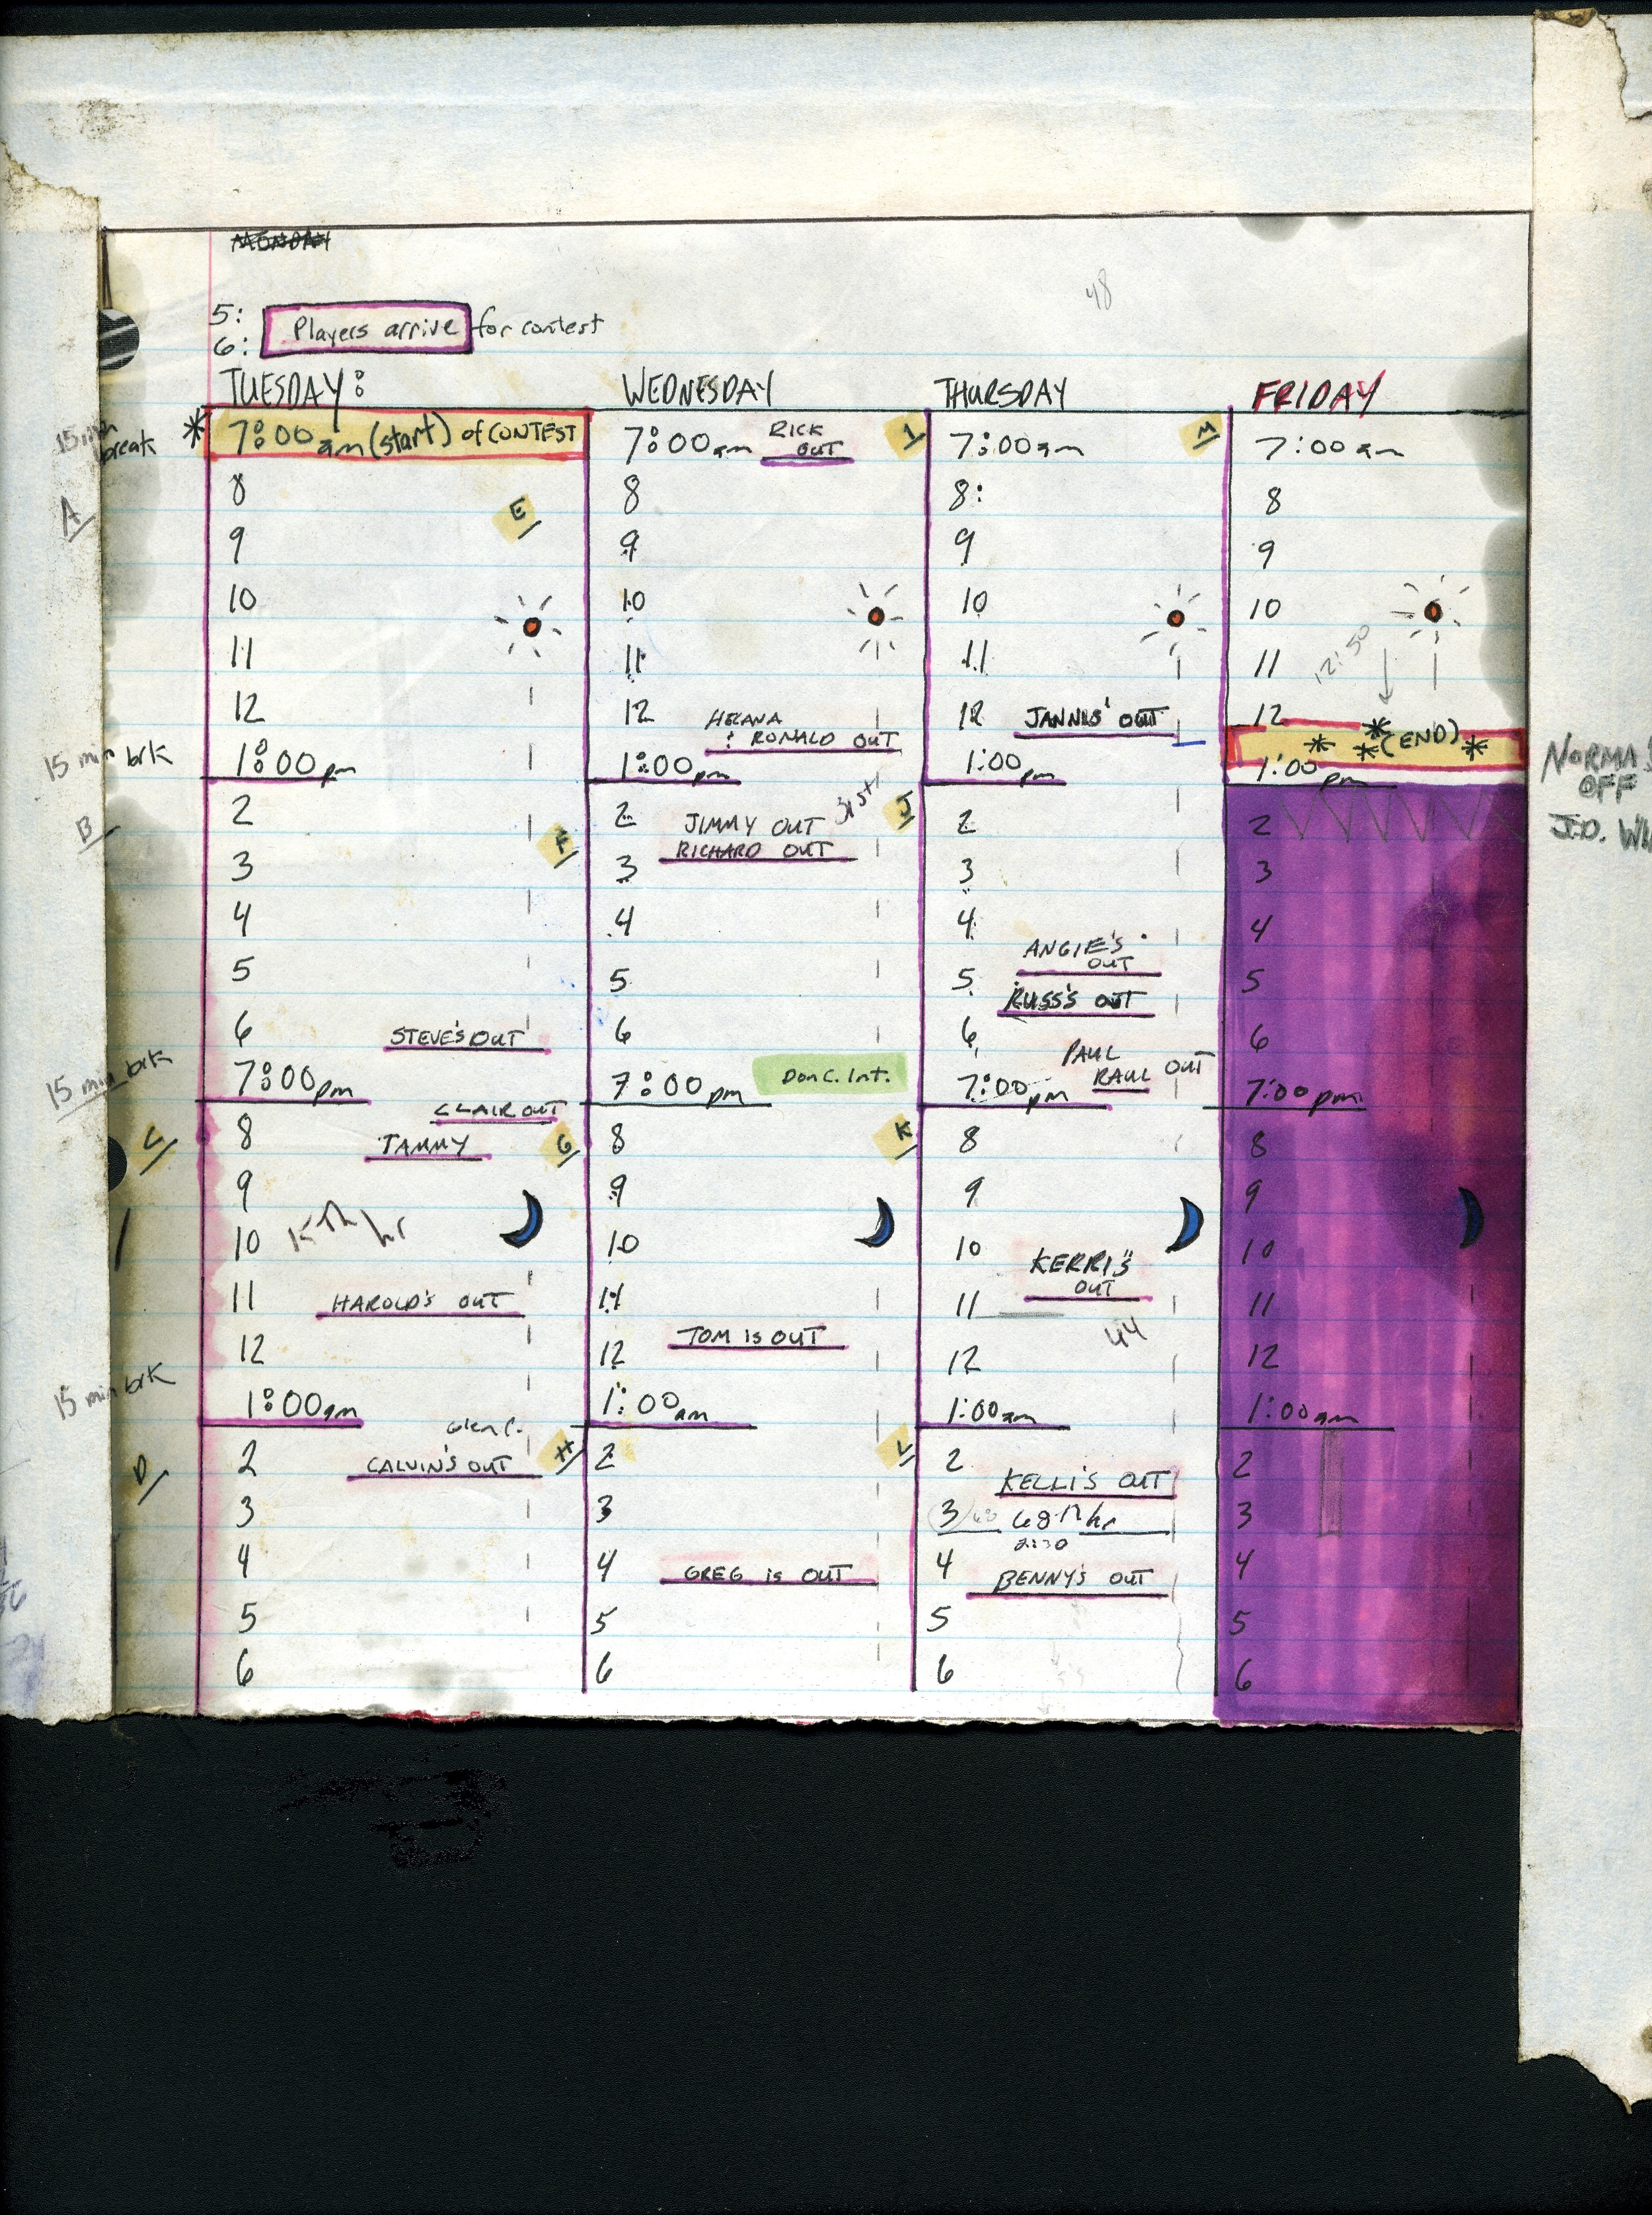 48
5:
6: Players arrive for contest
TUESDAY:
15 min break
* 7:00 am (start) of CONTEST
8
A
E
9
10
11
12
15 min brk
1:00 pm
2
B
F
3
4
5
6 STEVE'S OUT
15 min brk
7:00 pm
CLAIR OUT
8 TAMMY
C
G
9
10
hr
11 HAROLD'S OUT
12
15 min brk
1:00 am
Glen C.
2 CALVIN'S OUT
D
H
3
4
5
6
WEDNESDAY
7:00 am RICK OUT
I
8
9
10
11
12 HELANA
: RONALD OUT
1:00 pm
31st
2 JIMMY OUT
J
RICHARD OUT
3
4
5
6
7:00 pm Don C. Int.
8
K
9
10
11
TOM IS OUT
12
1:00 am
2
L
3
4 GREG is OUT
5
6
THURSDAY
7:00 am
M
8:
9
10
11
12 JANNIS' OUT
1:00 pm
2
3
4
ANGIE'S
OUT
5
RUSS'S OUT
6
PAUL
RAUL OUT
7:00 pm
8
9
10 KERRI'S
OUT
11
44
12
1:00 am
2
KELLI'S OUT
3 68 68 th hr
2:30
4 BENNY'S OUT
5
6
FRIDAY
7:00 am
8
9
10
11
12:50
12
* * * (END) *
1:00 pm
NORMA'S
OFF
2
3
4
5
6
7:00 pm
8
9
10
11
12
1:00 am
2
3
4
5
6